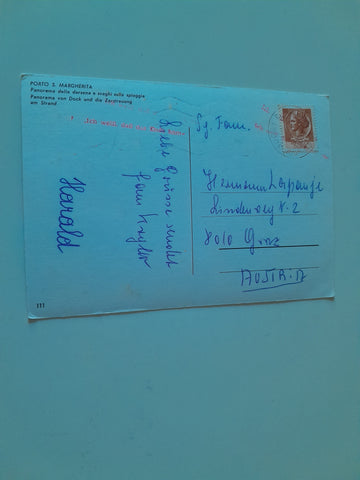 PORTO S. MARGHERITA
Panorama della darsena e svaghi sulla spiaggia
Panorama von Dock und die Zerstreuung
am Strand
Liebe Grüsse sendet
Harald
Sg. Fam.
Hermann
Lindenweg 2
8010 Graz
AUSTRIA
111